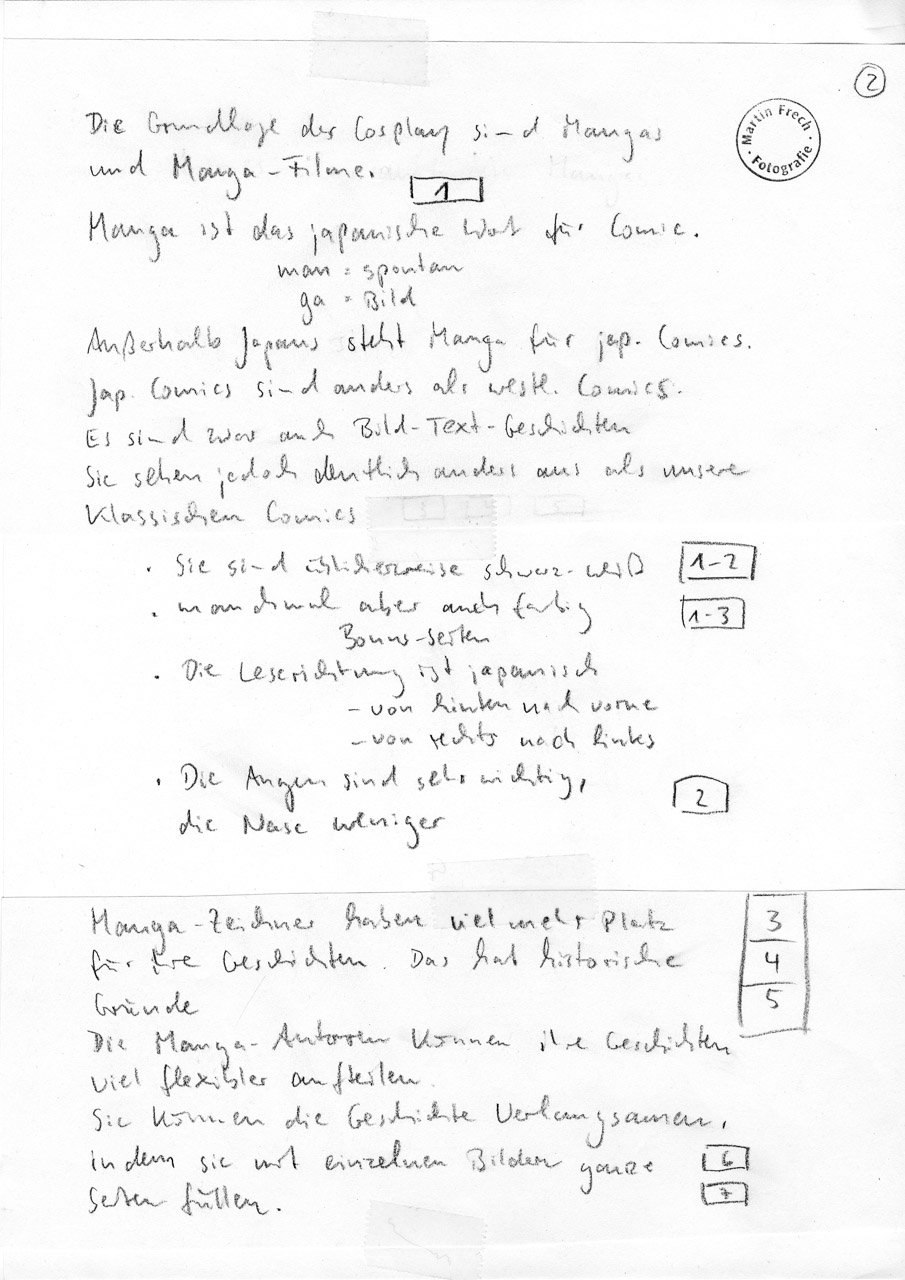 2
Martin Frech
· Fotografie ·
Die Grundlage des Cosplay sind Mangas
und Manga-Filme.
1
Manga ist das japanische Wort für Comic.
man = spontan
ga = Bild
Außerhalb Japans steht Manga für jap. Comics.
Jap. Comics sind anders als westl. Comics.
Es sind zwar auch Bild-Text-Geschichten
Sie sehen jedoch deutlich anders aus als unsere
klassischen Comics
· Sie sind üblicherweise schwarz-weiß 1-2
· manchmal aber auch farbig 1-3
Bonus-Seiten
· Die Leserichtung ist japanisch
- von hinten nach vorne
- von rechts nach links
· Die Augen sind sehr wichtig,
2
die Nase weniger
Manga-Zeichner haben viel mehr Platz 3
für ihre Geschichten. Das hat historische 4
Gründe 5
Die Manga-Autoren können ihre Geschichten
viel flexibler aufteilen.
Sie können die Geschichte verlangsamen,
indem sie mit einzelnen Bildern ganze 6
Seiten füllen. 7